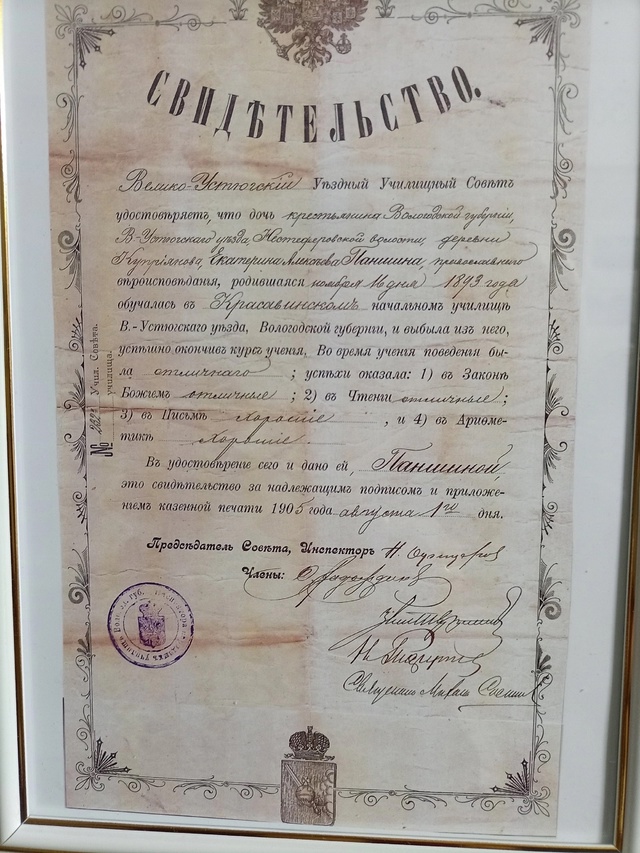 СВИДѢТЕЛЬСТВО.
Велико-Устюгскій Уѣздный Училищный Совѣтъ
удостовѣряетъ, что дочь крестьянина Вологодской губерніи,
В-Устюгскаго уѣзда, Нестеферовской волости, деревни
Купріянова, Екатерина Паншина, православнаго
вѣроисповѣданія, родившаяся ноября 16 дня 1893 года
обучалась въ Красавинскомъ начальномъ училищѣ
В.-Устюгскаго уѣзда, Вологодской губерніи, и выбыла изъ него,
успѣшно окончивъ курсъ ученія, Во время ученія поведенія бы-
ла отличнаго ; успѣхи оказала: 1) въ Законѣ
Божіемъ отличные ; 2) въ Чтеніи отличные ;
3) въ Письмѣ хорошіе , и 4) въ Ариѳме-
тикѣ хорошіе.
Въ удостовѣреніе сего и дано ей, Паншиной,
это свидѣтельство за надлежащимъ подписомъ и приложе-
ніемъ казенной печати 1905 года августа 1го дня.
Предсѣдатель Совѣта, Инспекторъ Н.
Члены:
Священникъ Михаилъ
№
Учил. Совѣта.
училища.